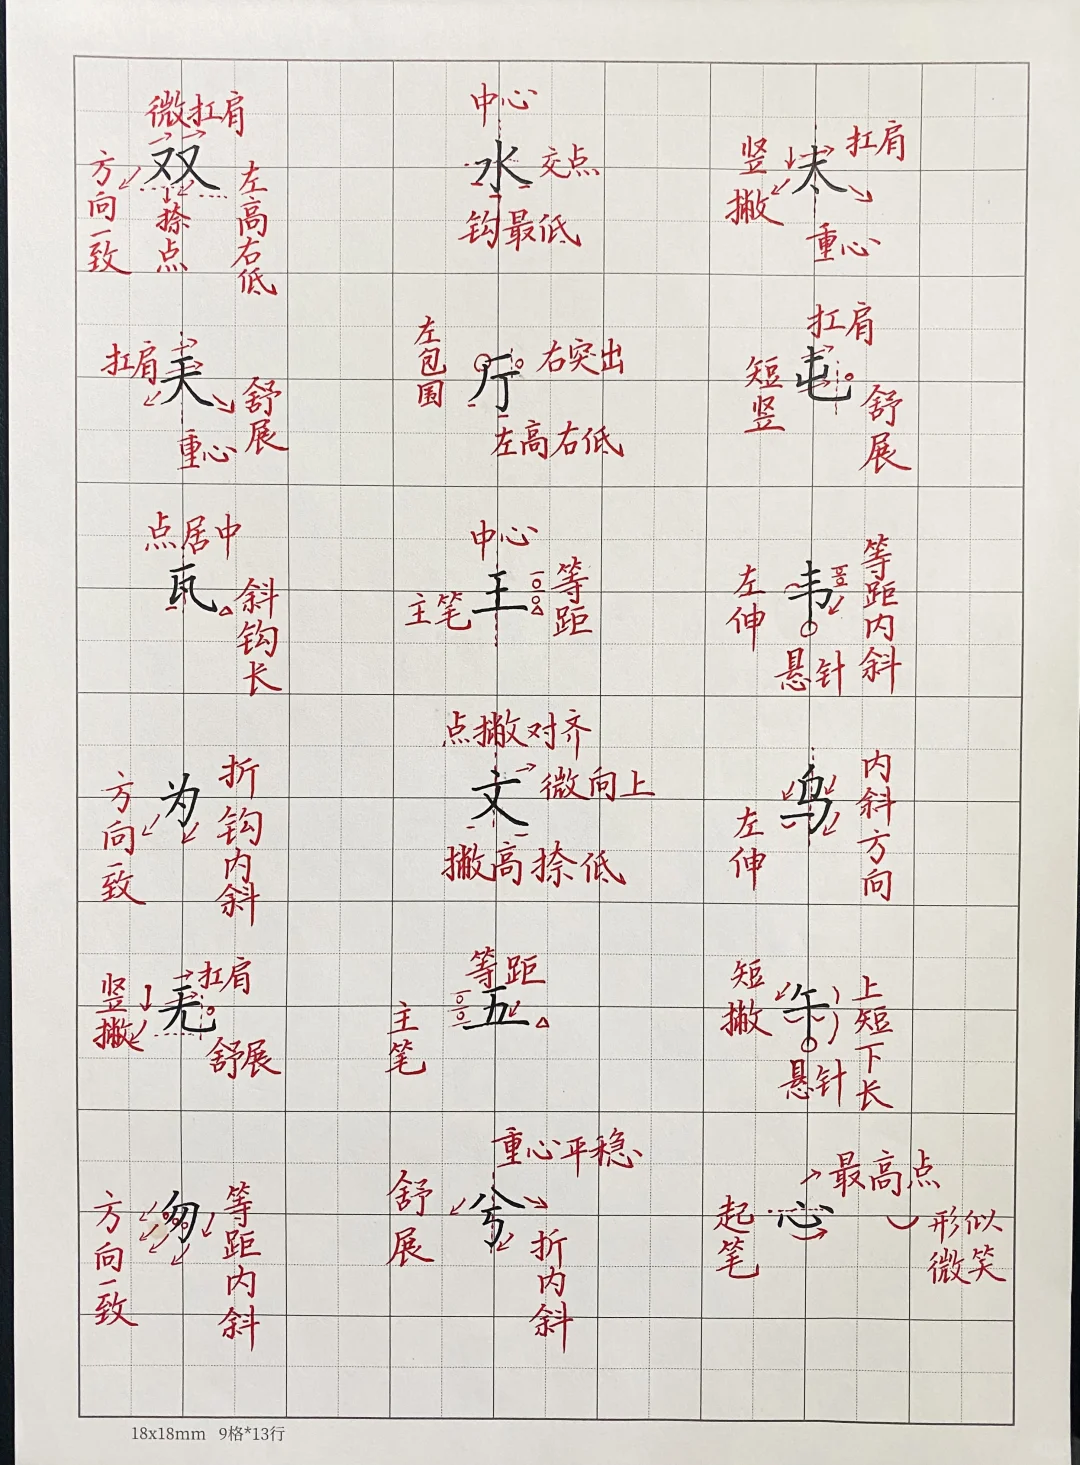 微扛肩
双
方向一致
捺点
左高右低
中心
水
交点
钩最低
扛肩
竖撇
未
重心
扛肩
夫
舒展
重心
左包围
厅
右突出
左高右低
扛肩
短竖
屯
舒展
点居中
瓦
斜钩长
中心
主笔
王
等距
左伸
韦
等距内斜
悬针
方向一致
为
折钩内斜
点撇对齐
文
微向上
撇高捺低
左伸
乌
内斜方向
竖撇
无
扛肩
舒展
等距
主笔
五
短撇
午
上短下长
悬针
方向一致
匆
等距内斜
重心平稳
舒展
兮
折内斜
最高点
起笔
心
形似微笑
18x18mm 9格*13行